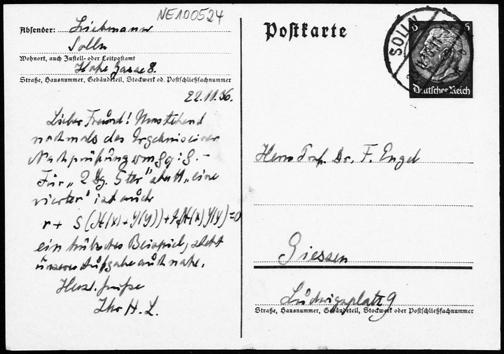 NE100524
Absender: Liebmann
Solln
Wohnort, auch Zustell- oder Leitpostamt
Hofe 8.
Straße, Hausnummer, Gebäudeteil, Stockwerk od. Postschließfachnummer
22.11.36.
Lieber Freund! Umstehend
nochmals das Ergebnis einer
Nachprüfung
Für „2 5ter" statt „eine
vierter" ist auch
r + s(X(x)+Y(y))+t(X(x)Y(y))=0
ein hübsches Beispiel, steht
unserer Aufgabe auch nahe.
Herzl. Grüße
Ihr H. L.
Postkarte
SOLLN
Deutsches Reich
Herrn Prof. Dr. F. Engel
Giessen
Ludwigsplatz 9
Straße, Hausnummer, Gebäudeteil, Stockwerk oder Postschließfachnummer